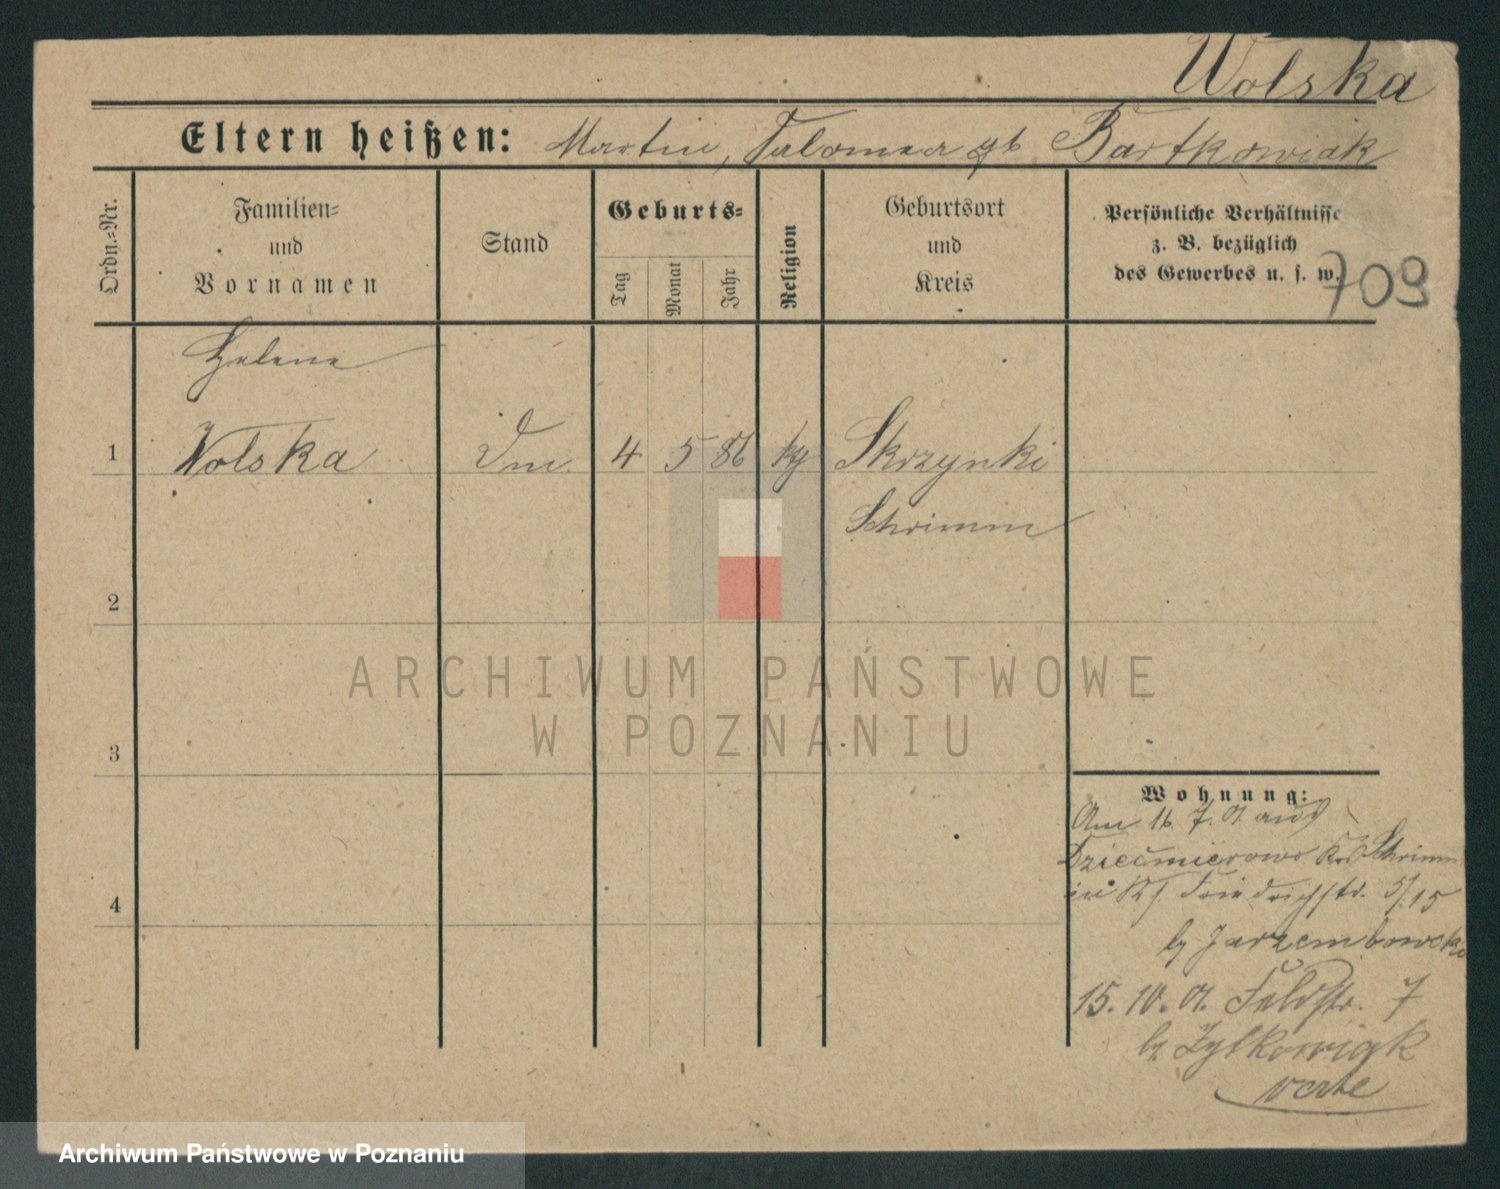 Wolska
Eltern heißen: Martin, Salomea gb Bartkowiak
Ordn.-Nr.
Familien-
und
Vornamen
Stand
Geburts-
Tag
Monat
Jahr
Religion
Geburtsort
und
Kreis
Persönliche Verhältnisse
z. B. bezüglich
des Gewerbes u. s. w.
709
Helene
1 Wolska Dm 4 5 86 kg Skrzynki
Schrimm
2
3
4
ARCHIWUM PAŃSTWOWE
W POZNANIU
Wohnung:
Am 16. 7. 01 aus
Dziećmierowo Krs Schrimm
in Friedrichstr. 5/15
b/ Jarzembowski
15. 10. 01. Feldstr. 7
b/ Zylkowiak
verte
Archiwum Państwowe w Poznaniu